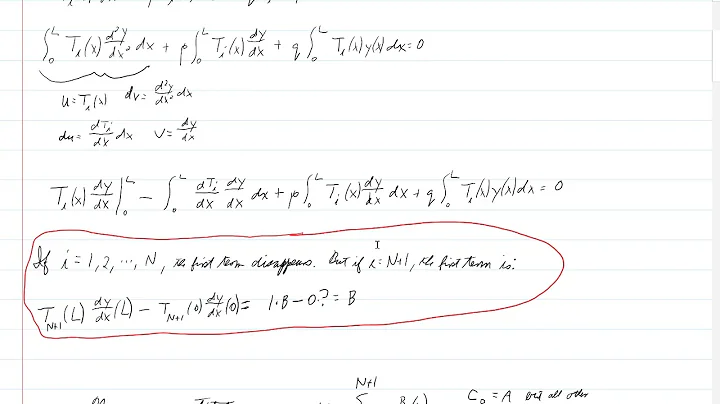 ∫₀ᴸ Tᵢ(x) d²y/dx² dx + p∫₀ᴸ Tᵢ(x) dy/dx + q∫₀ᴸ Tᵢ(x)y(x)dx=0
u=Tᵢ(x) dv= d²y/dx² dx
du= dTᵢ/dx dx v= dy/dx
Tᵢ(x) dy/dx |₀ᴸ − ∫₀ᴸ dTᵢ/dx dy/dx dx + p∫₀ᴸ Tᵢ(x) dy/dx dx + q∫₀ᴸ Tᵢ(x)y(x)dx = 0
If i=1,2,⋯,N, the first term disappears. But if i=N+1, the first term is:
T_{N+1}(L) dy/dx(L) − T_{N+1}(0) dy/dx(0)= 1·B−0·?=B
N+1
C₀=A but all other